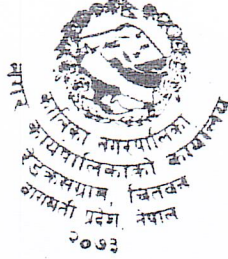 कालिका नगरपालिका
नगर कार्यपालिकाको कार्यालय
रेडक्रसग्राम, चितवन
बागमती प्रदेश, नेपाल
२०७३